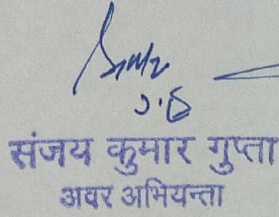 संजय कुमार गुप्ता
अवर अभियन्ता